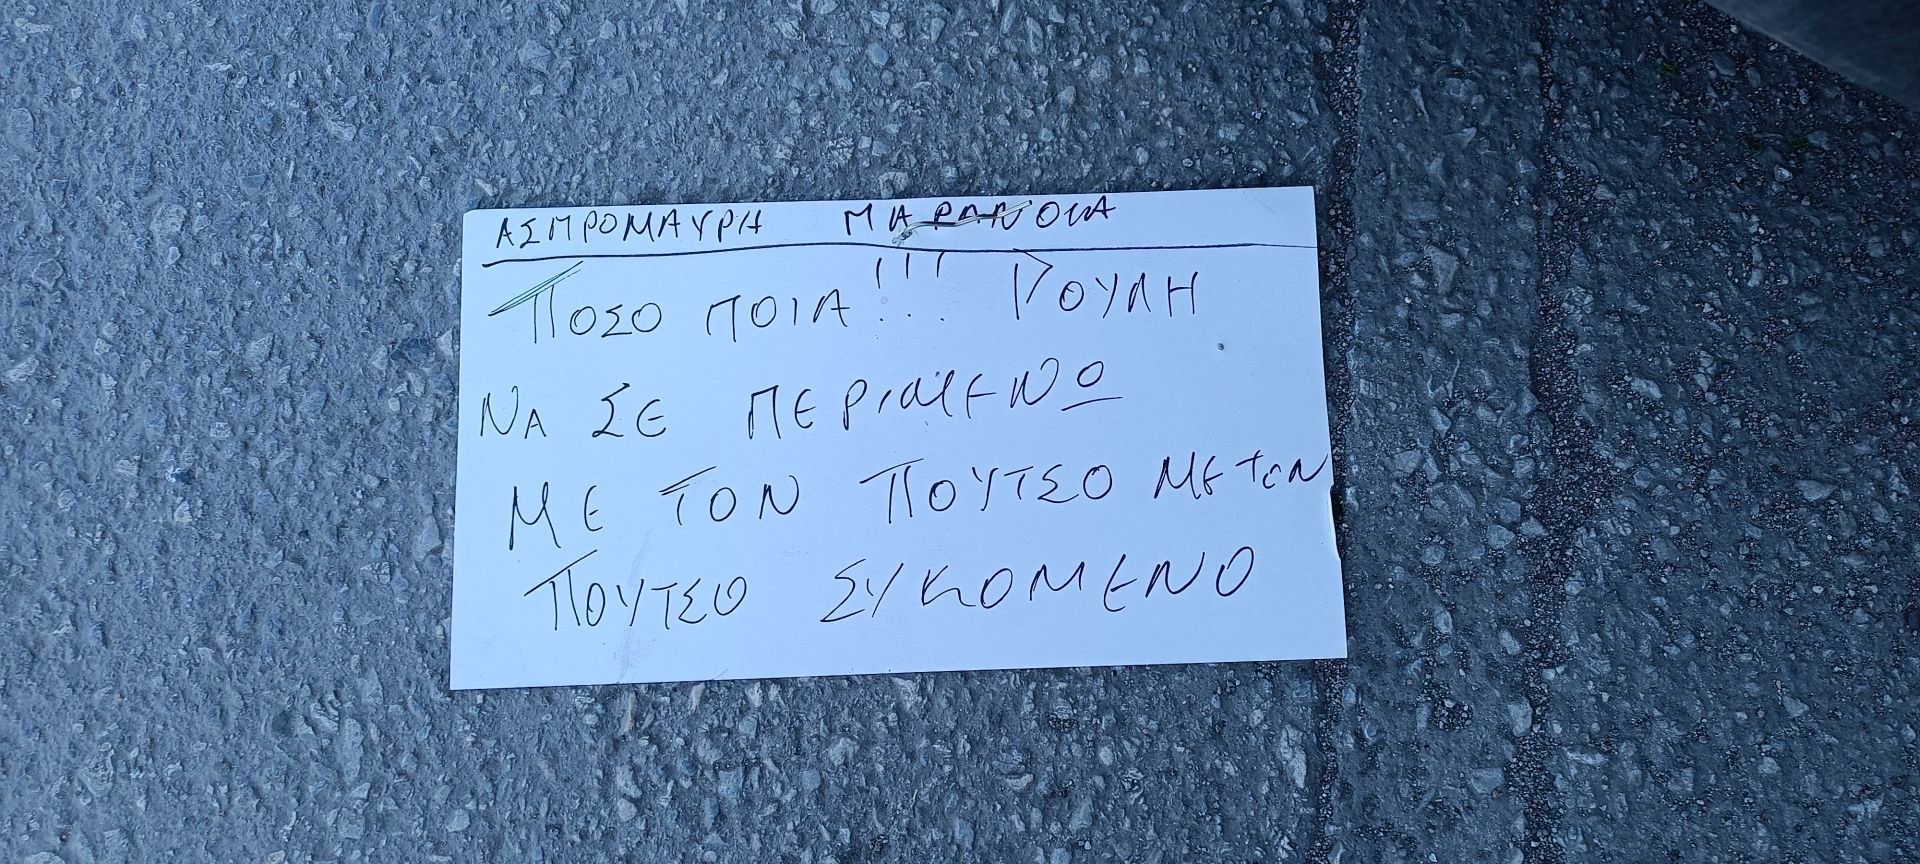 ΑΣΠΡΟΜΑΥΡΗ ΠΑΡΑΝΟΙΑ
ΠΟΣΟ ΠΟΙΑ!!! ΡΟΥΛΗ
ΝΑ ΣΕ ΠΕΡΙΜΕΝΩ
ΜΕ ΤΟΝ ΠΟΥΤΣΟ ΜΕ ΤΟΝ
ΠΟΥΤΣΟ ΣΥΚΟΜΕΝΟ